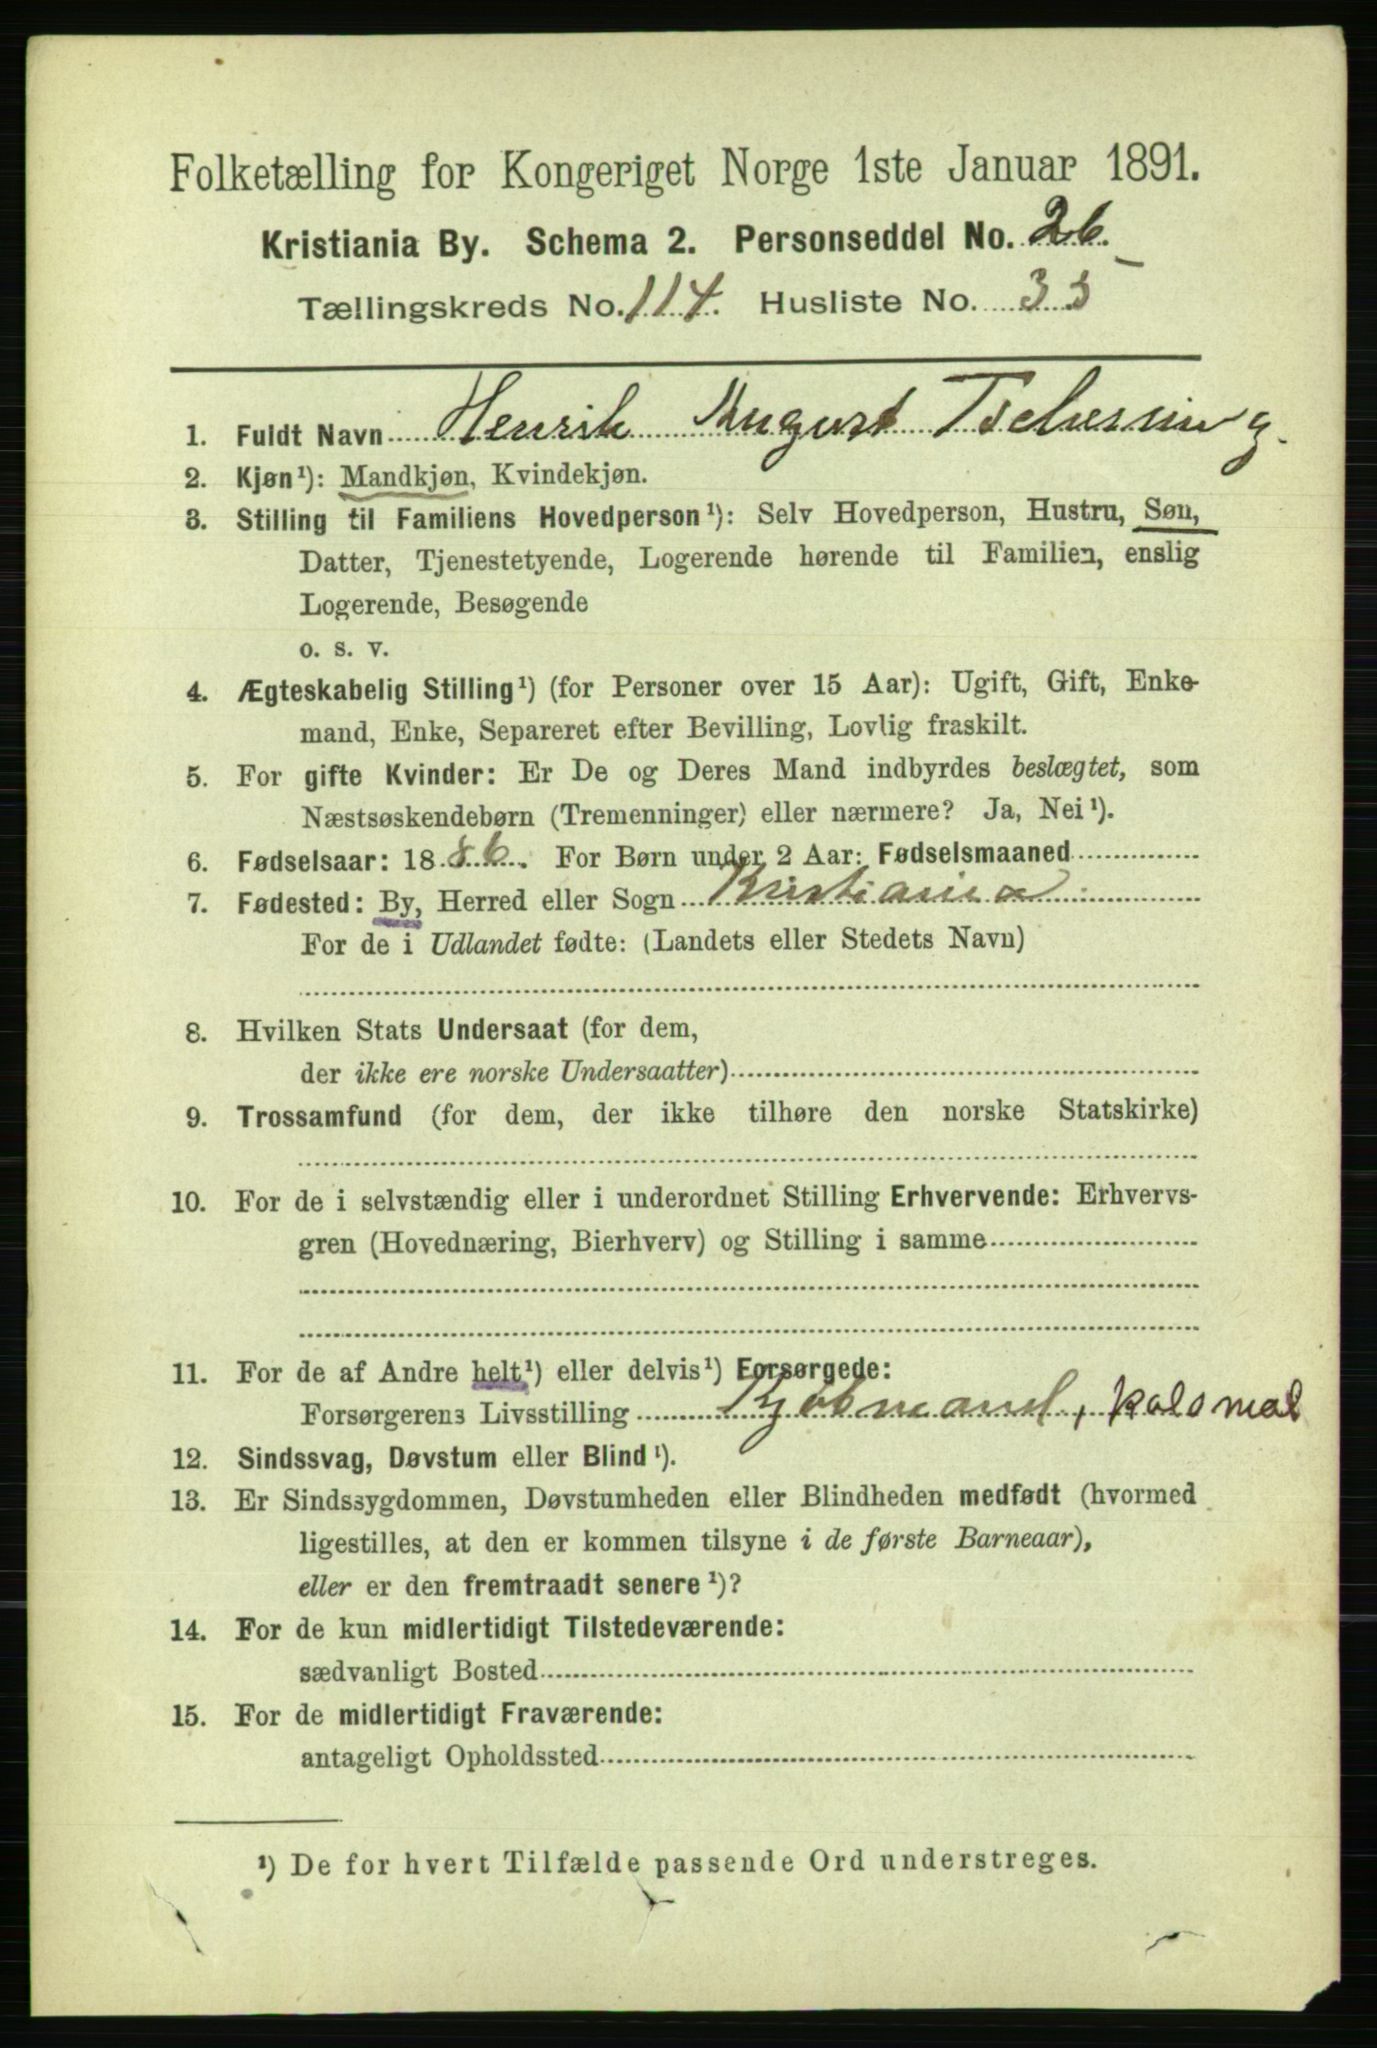 Folketælling for Kongeriget Norge 1ste Januar 1891.
Kristiania By. Schema 2. Personseddel No. 26.
Tællingskreds No. 114. Husliste No. 33
1. Fuldt Navn Henrik August
2. Kjøn¹): Mandkjøn, Kvindekjøn.
3. Stilling til Familiens Hovedperson¹): Selv Hovedperson, Hustru, Søn,
Datter, Tjenestetyende, Logerende hørende til Familien, enslig
Logerende, Besøgende
o. s. v.
4. Ægteskabelig Stilling¹) (for Personer over 15 Aar): Ugift, Gift, Enke-
mand, Enke, Separeret efter Bevilling, Lovlig fraskilt.
5. For gifte Kvinder: Er De og Deres Mand indbyrdes beslægtet, som
Næstsøskendebørn (Tremenninger) eller nærmere? Ja, Nei¹).
6. Fødselsaar: 1886. For Børn under 2 Aar: Fødselsmaaned
7. Fødested: By, Herred eller Sogn Kristiania
For de i Udlandet fødte: (Landets eller Stedets Navn)
8. Hvilken Stats Undersaat (for dem,
der ikke ere norske Undersaatter)
9. Trossamfund (for dem, der ikke tilhøre den norske Statskirke)
10. For de i selvstændig eller i underordnet Stilling Erhvervende: Erhvervs-
gren (Hovednæring, Bierhverv) og Stilling i samme
11. For de af Andre helt¹) eller delvis¹) Forsørgede:
Forsørgerens Livsstilling Kjøbmand,
12. Sindssvag, Døvstum eller Blind¹).
13. Er Sindssygdommen, Døvstumheden eller Blindheden medfødt (hvormed
ligestilles, at den er kommen tilsyne i de første Barneaar),
eller er den fremtraadt senere¹)?
14. For de kun midlertidigt Tilstedeværende:
sædvanligt Bosted
15. For de midlertidigt Fraværende:
antageligt Opholdssted
¹) De for hvert Tilfælde passende Ord understreges.